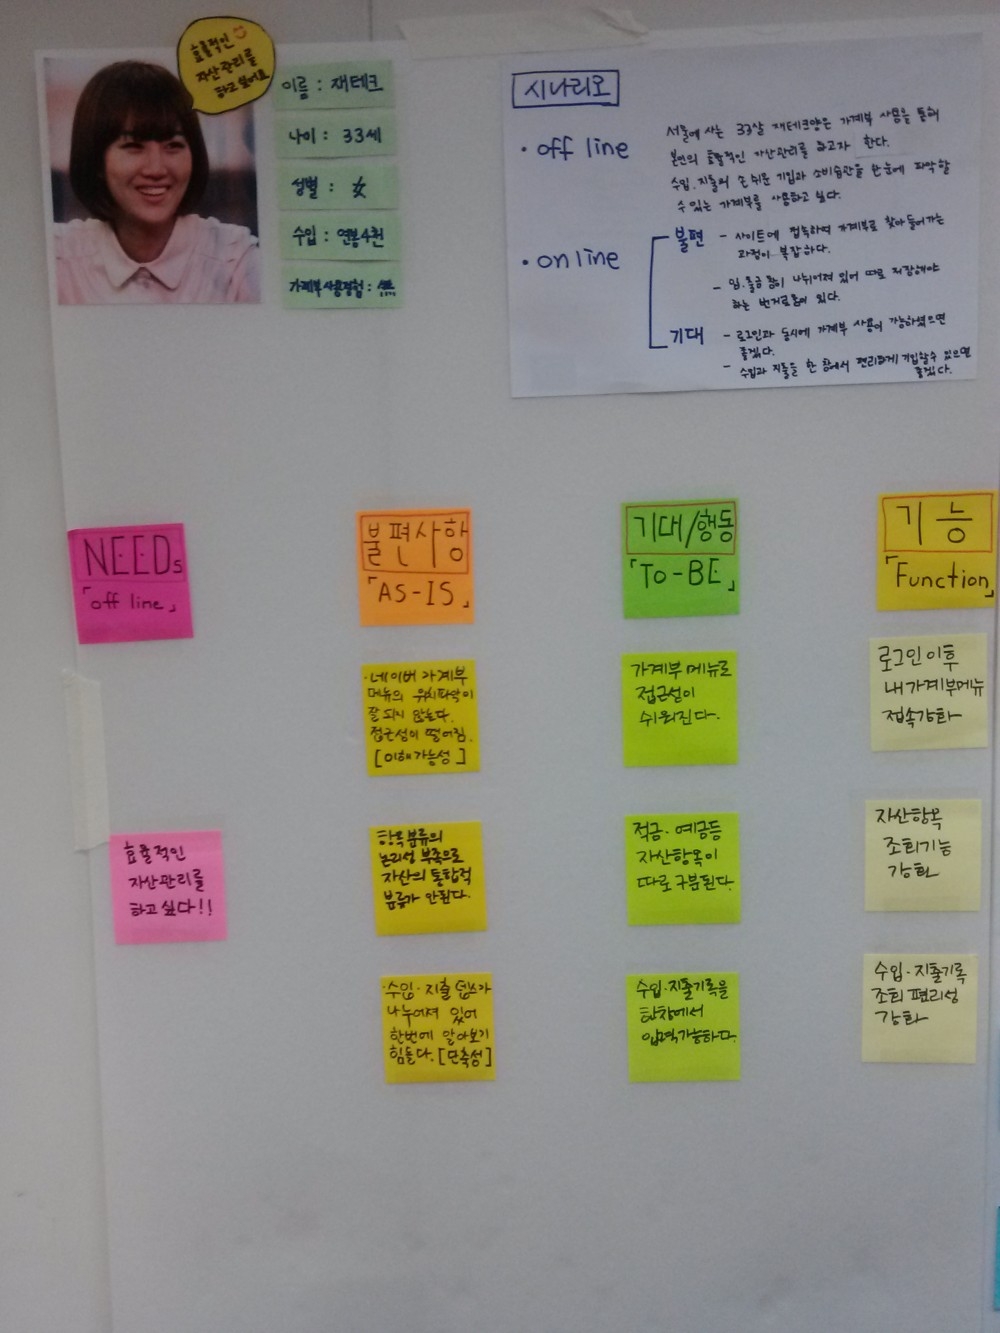 효율적인
자산관리를
하고싶어요
이름 : 재테크
나이 : 33세
성별 : 女
수입 : 연봉4천
가계부사용경험 : 無
시나리오
• off line
서울에 사는 33살 재테크양은 가계부 사용을 통해
본인의 효율적인 자산관리를 하고자 한다.
수입.지출의 손쉬운 기입과 소비습관을 한눈에 파악할
수 있는 가계부를 사용하고 싶다.
• online
불편 - 사이트에 접속하여 가계부로 찾아들어가는
과정이 복잡하다.
- 입.출금 폼이 나뉘어져 있어 따로 저장해야
하는 번거로움이 있다.
기대 - 로그인과 동시에 가계부 사용이 가능하였으면
좋겠다.
- 수입과 지출을 한 창에서 편리하게 기입할수 있으면
좋겠다.
NEEDs
「off line」
불편사항
「AS-IS」
기대/행동
「To-BE」
기능
「Function」
·네이버 가계부
메뉴의 위치파악이
잘 되지 않는다.
접근성이 떨어짐.
[이해가능성]
가계부 메뉴로
접근성이
쉬워진다.
로그인 이후
내가계부메뉴
접속강화
효율적인
자산관리를
하고싶다!!
항목분류의
논리성 부족으로
자산의 통합적
분류가 안된다.
적금·예금등
자산항목이
따로 구분된다.
자산항목
조회기능
강화
·수입·지출 탭쓰가
나누어져 있어
한번에 알아보기
힘들다.[단축성]
수입·지출기록을
한창에서
입력가능하다.
수입·지출기록
조회 편리성
강화